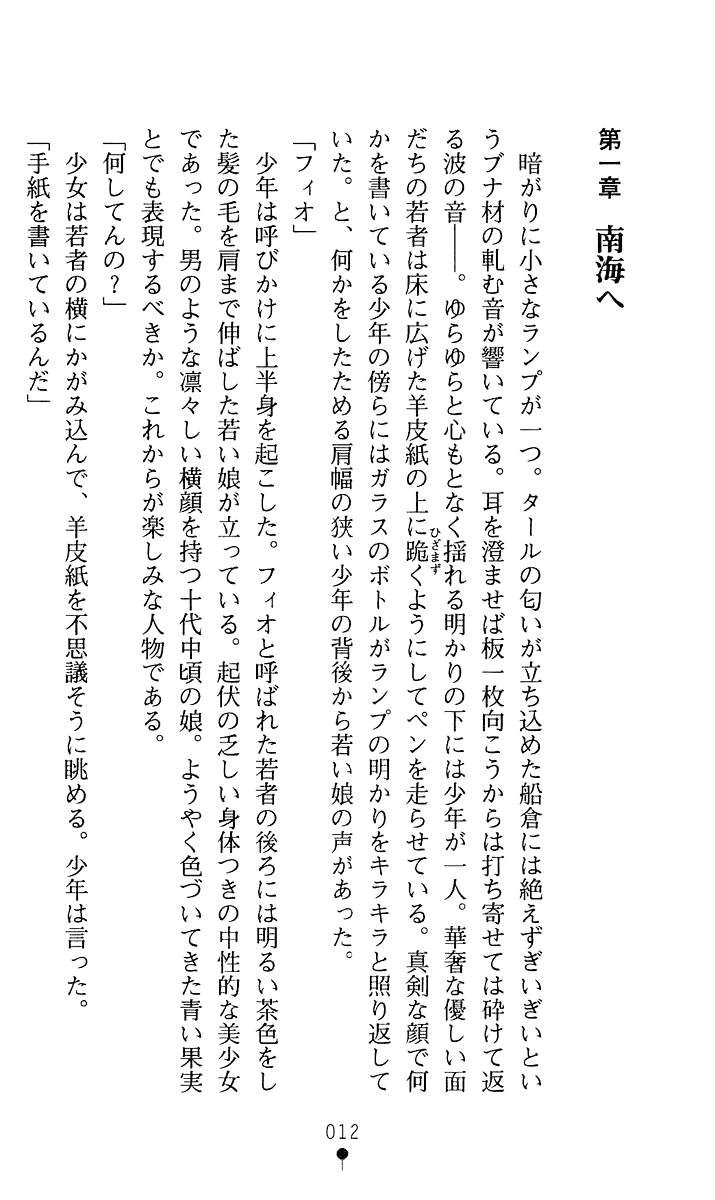 第一章　南海へ
　暗がりに小さなランプが一つ。タールの匂いが立ち込めた船倉には絶えずぎいぎいとい
うブナ材の軋む音が響いている。耳を澄ませば板一枚向こうからは打ち寄せては砕けて返
る波の音――。ゆらゆらと心もとなく揺れる明かりの下には少年が一人。華奢な優しい面
だちの若者は床に広げた羊皮紙の上に跪くようにしてペンを走らせている。真剣な顔で何
ひざまず
かを書いている少年の傍らにはガラスのボトルがランプの明かりをキラキラと照り返して
いた。と、何かをしたためる肩幅の狭い少年の背後から若い娘の声があった。
「フィオ」
　少年は呼びかけに上半身を起こした。フィオと呼ばれた若者の後ろには明るい茶色をし
た髪の毛を肩まで伸ばした若い娘が立っている。起伏の乏しい身体つきの中性的な美少女
であった。男のような凛々しい横顔を持つ十代中頃の娘。ようやく色づいてきた青い果実
とでも表現するべきか。これからが楽しみな人物である。
「何してんの？」
　少女は若者の横にかがみ込んで、羊皮紙を不思議そうに眺める。少年は言った。
「手紙を書いているんだ」
012